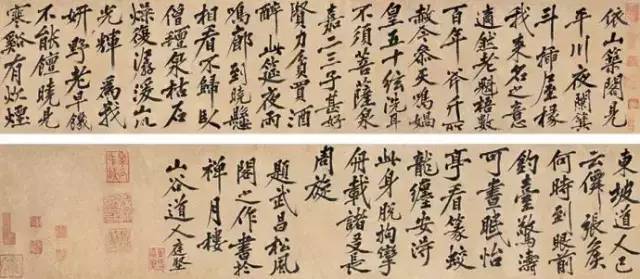 依山築閣見
平川夜闌箕
斗插屋椽
我來名之意
適然老魁梧數
百年斧斤所
赦今參天鳴媧
皇五十弦洗耳
不須菩薩泉
嘉二三子甚好
賢力貧買酒
醉此筵夜雨
鳴廊到曉懸
相看不歸臥
僧氈泉枯石
燥復潺湲山川
光輝為我
妍野老早饑
不能饘曉見
寒谿有炊煙
東坡道人已
云僊張矦
何時到眼前
釣臺驚濤
可晝眠怡
亭看篆蛟
龍纏安得
此身脫拘攣
舟載諸友長
周旋
題武昌松風
閣之作書於
禪月樓
山谷道人庭堅